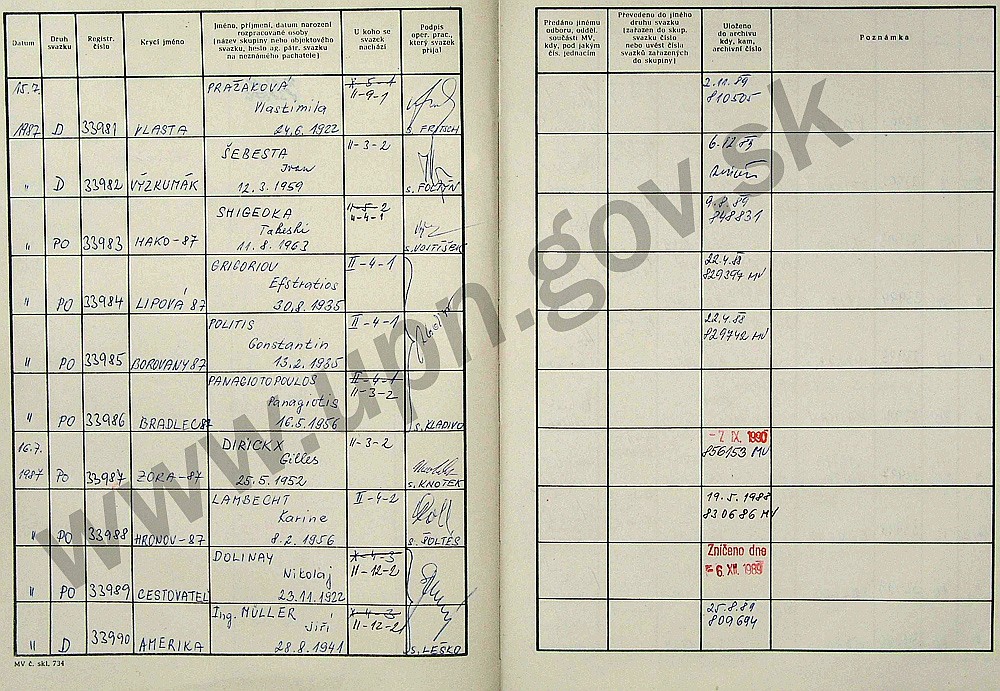 Datum
Druh svazku
Registr. číslo
Krycí jméno
Jméno, příjmení, datum narození
rozpracované osoby
(název skupiny nebo objektového
svazku, heslo ag. pátr. svazku
na neznámého pachatele)
U koho se
svazek
nachází
Podpis
oper. prac.,
který svazek
přijal
Předáno jinému
odboru, odděl.
součásti MV,
kdy, pod jakým
čís. jednacím
Převedeno do jiného
druhu svazku
(zařazen do skup.
svazku číslo
nebo uvést čísla
svazků zařazených
do skupiny)
Uloženo
do archivu
kdy, kam,
archivní číslo
Poznámka
15.7. PRAŽÁKOVÁ X-5-1 2.11.89
Vlastimila II-9-1 810505
1987 D 33981 VLASTA 24.6.1922 s. FRITSCH
ŠEBESTA II-3-2 6.12.89
Ivan
" D 33982 VÝZKUMÁK 12.3.1959 s. FOLTÝN
SHIGEOKA II-5-2 9.8.89
Takeshi II-4-1 848831
" PO 33983 HAKO-87 11.8.1963 s. VOJTÍŠEK
GRIGORIOU II-4-1 22.4.88
Efstratios 829397 MV
" PO 33984 LIPOVÁ 87 30.8.1935
POLITIS II-4-1 22.4.88
Constantin 829742 MV
" PO 33985 BOROVANY 87 13.2.1935
PANAGIOTOPOULOS II-4-1
Panagiotis II-3-2
" PO 33986 BRADLEC 87 16.5.1956 s. KLADIVO
16.7. DIRICKX II-3-2 - 7. IX. 1990
Gilles 856153 MV
1987 PO 33987 ZORA-87 25.5.1952 s. KNOTEK
LAMBECHT II-4-2 19.5.1988
Karine 830686 MV
" PO 33988 HRONOV-87 8.2.1956 s. ŠOLTÉS
DOLINAY X-4-3 Zničeno dne
Nikolaj II-12-2 - 6. XII. 1989
" PO 33989 CESTOVATEL 23.11.1922
Ing. MÜLLER X-4-3 25.8.89
Jiří II-12-2 809694
" D 33990 AMERIKA 28.8.1941 s. LEŠKO
MV č. skl. 734
www.upn.gov.sk